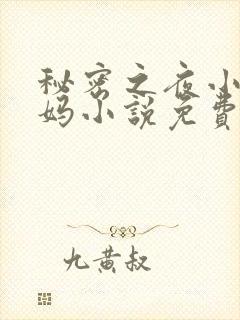 秘密之夜小
妈小说免费
九黄叔